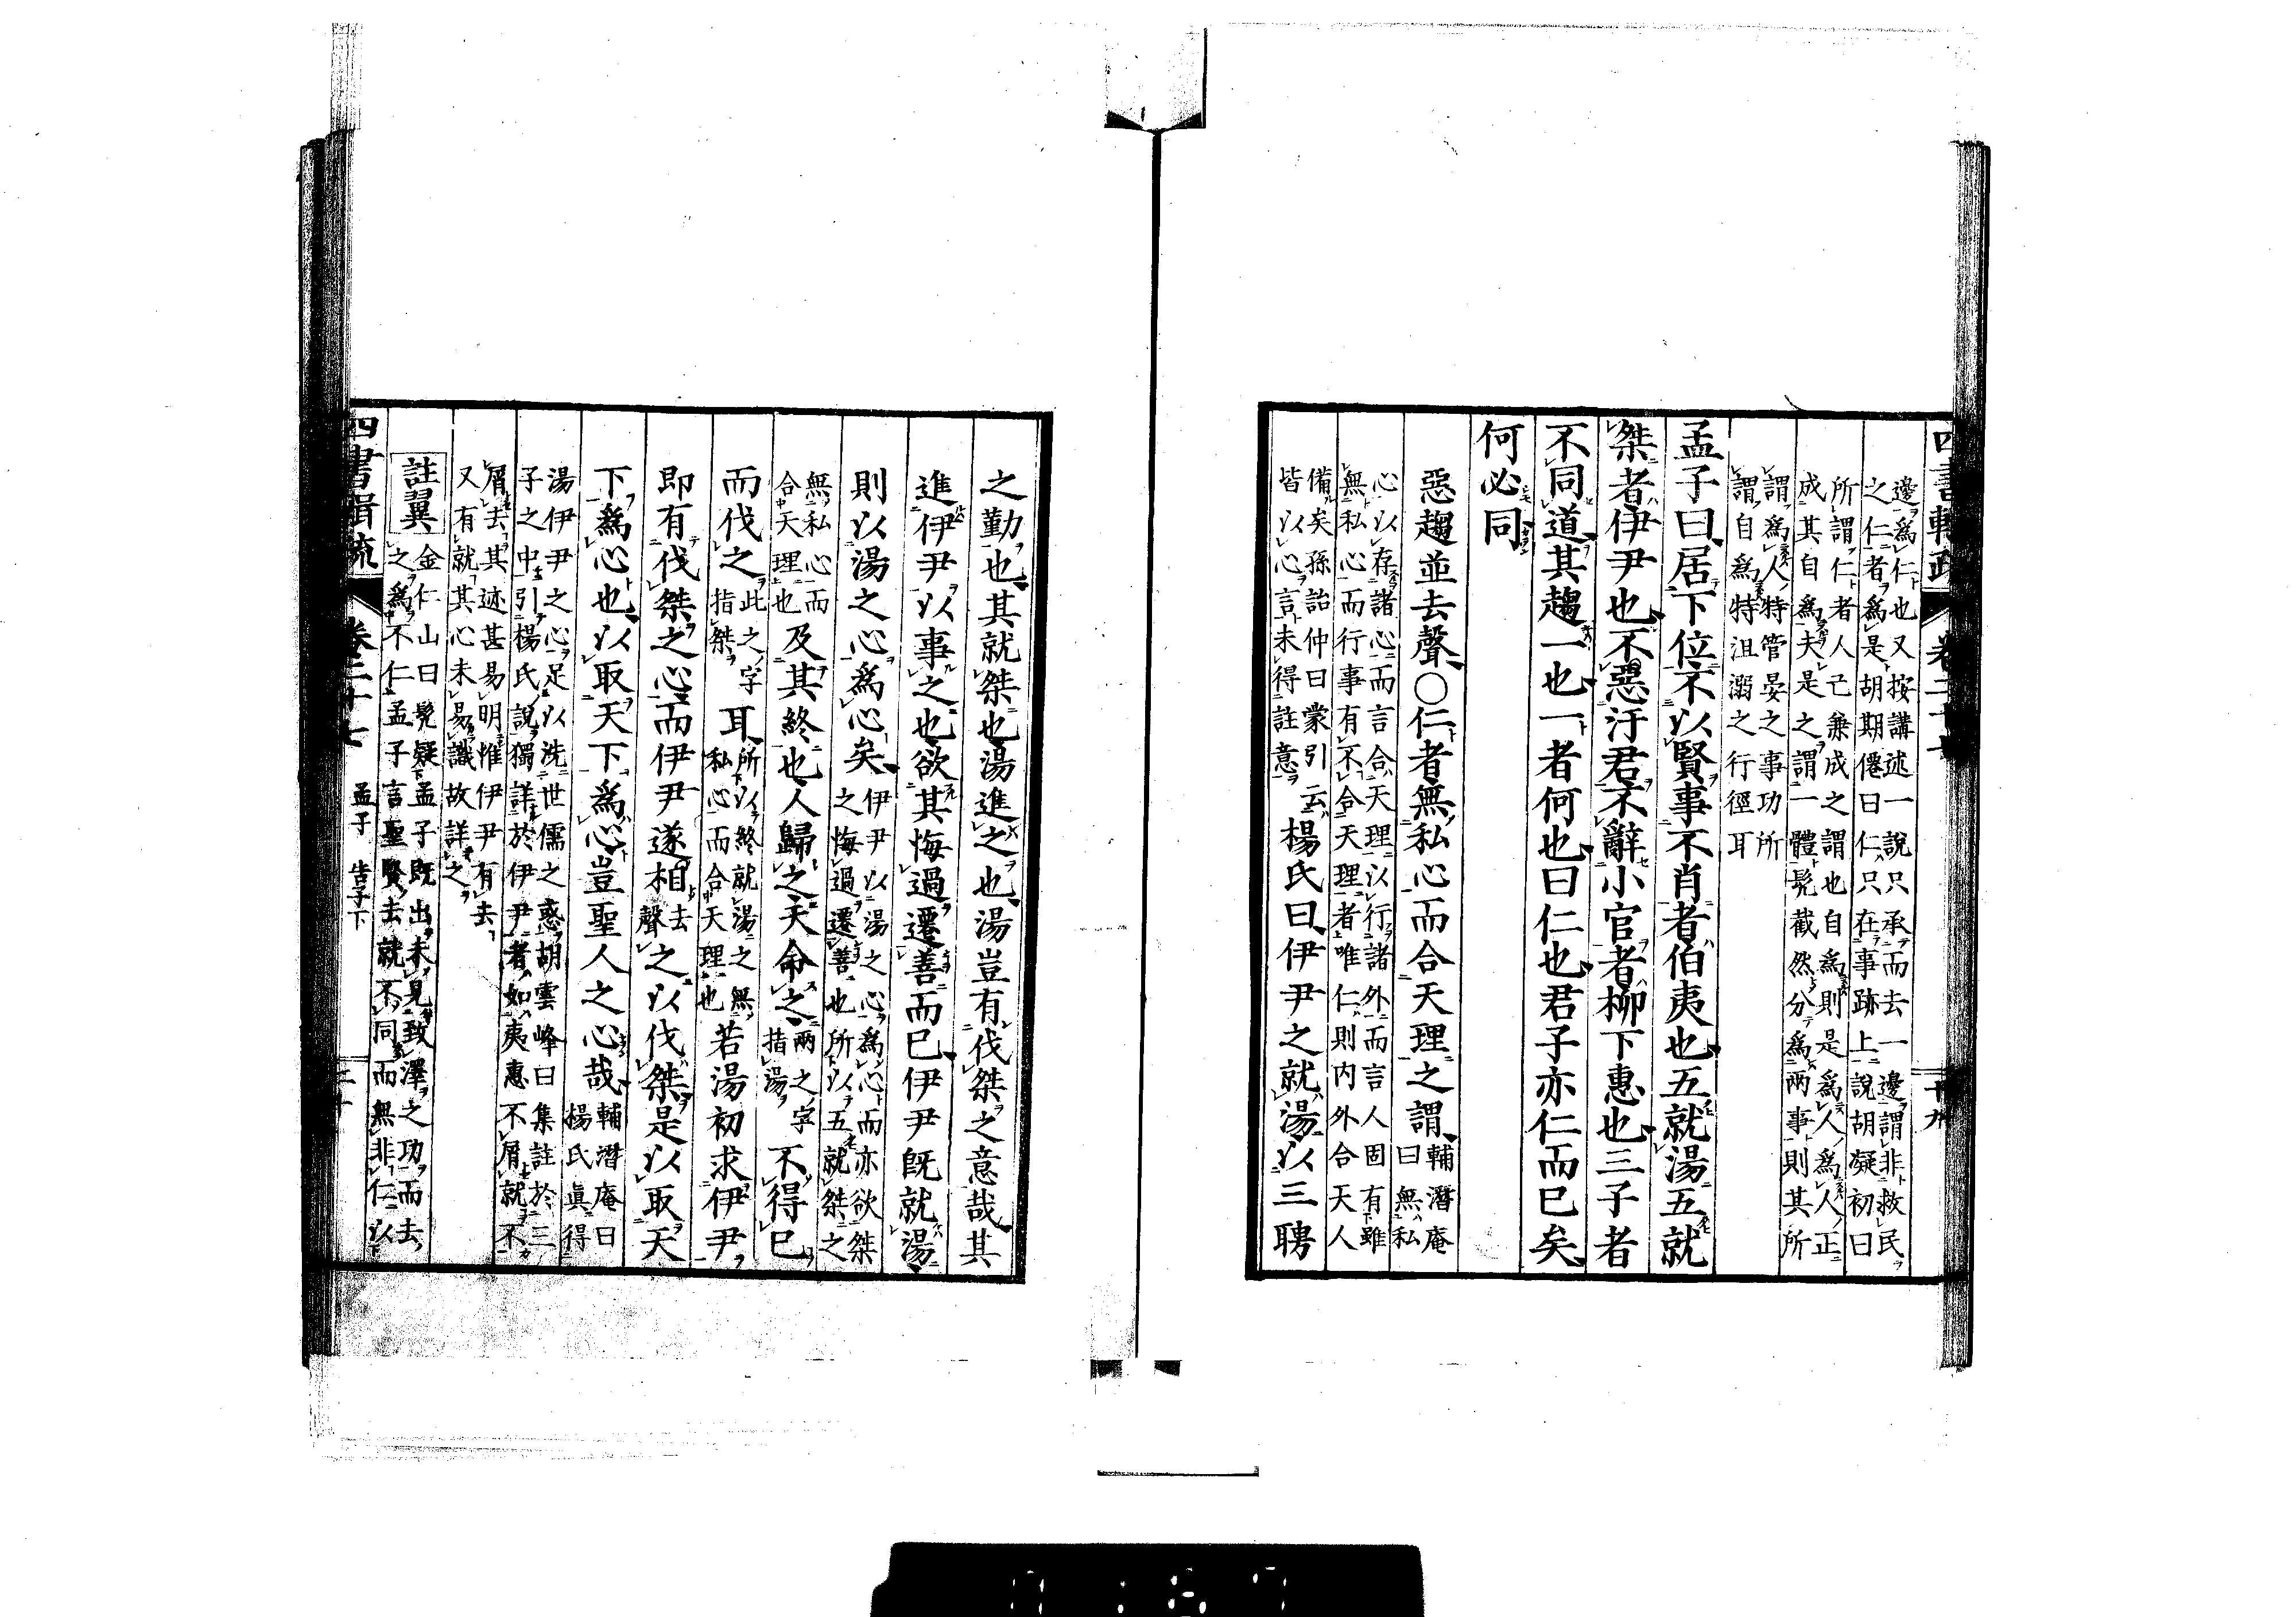 四書輯疏 卷二十七 十九
邊爲仁也又按講述一說只承而去一邊謂非救民
之仁者爲是胡期僊曰仁只在事跡上說胡凝初曰
所謂仁者人己兼成之謂也自爲則是爲人爲人正
成其自爲夫是之謂一體髡截然分爲兩事則其所
謂爲人特管晏之事功所
謂自爲特沮溺之行徑耳
孟子曰居下位不以賢事不肖者伯夷也五就湯五就
桀者伊尹也不惡汙君不辭小官者柳下惠也三子者
不同道其趨一也一者何也曰仁也君子亦仁而已矣
何必同
惡趨並去聲○仁者無私心而合天理之謂輔潛庵
曰無私
心以存諸心而言合天理以行諸外而言人固有雖
無私心而行事有不合天理者唯仁則内外合天人
備矣孫詒仲曰蒙引云
皆以心言未得註意楊氏曰伊尹之就湯以三聘
之勤也其就桀也湯進之也湯豈有伐桀之意哉其
進伊尹以事之也欲其悔過遷善而已伊尹既就湯
則以湯之心爲心矣伊尹以湯之心爲心而亦欲桀
之悔過遷善也所以五就桀之
無私心而
合天理也及其終也人歸之天命之兩之字
指湯不得已
而伐之此之字
指桀耳所以終就湯之無
私心而合天理也若湯初求伊尹
即有伐桀之心而伊尹遂相去
聲之以伐桀是以取天
下爲心也以取天下爲心豈聖人之心哉輔潛庵曰
楊氏眞得
湯伊尹之心足以洗世儒之惑胡雲峰曰集註於三
子之中引楊氏說獨詳於伊尹者如夷惠不屑就不
屑去其迹甚易明惟伊尹有去
又有就其心未易識故詳之
註翼金仁山曰髡疑孟子既出未見致澤之功而去
之爲不仁孟子言聖賢去就不同而無非仁以
四書輯疏 卷二十七 孟子 告子下 二十